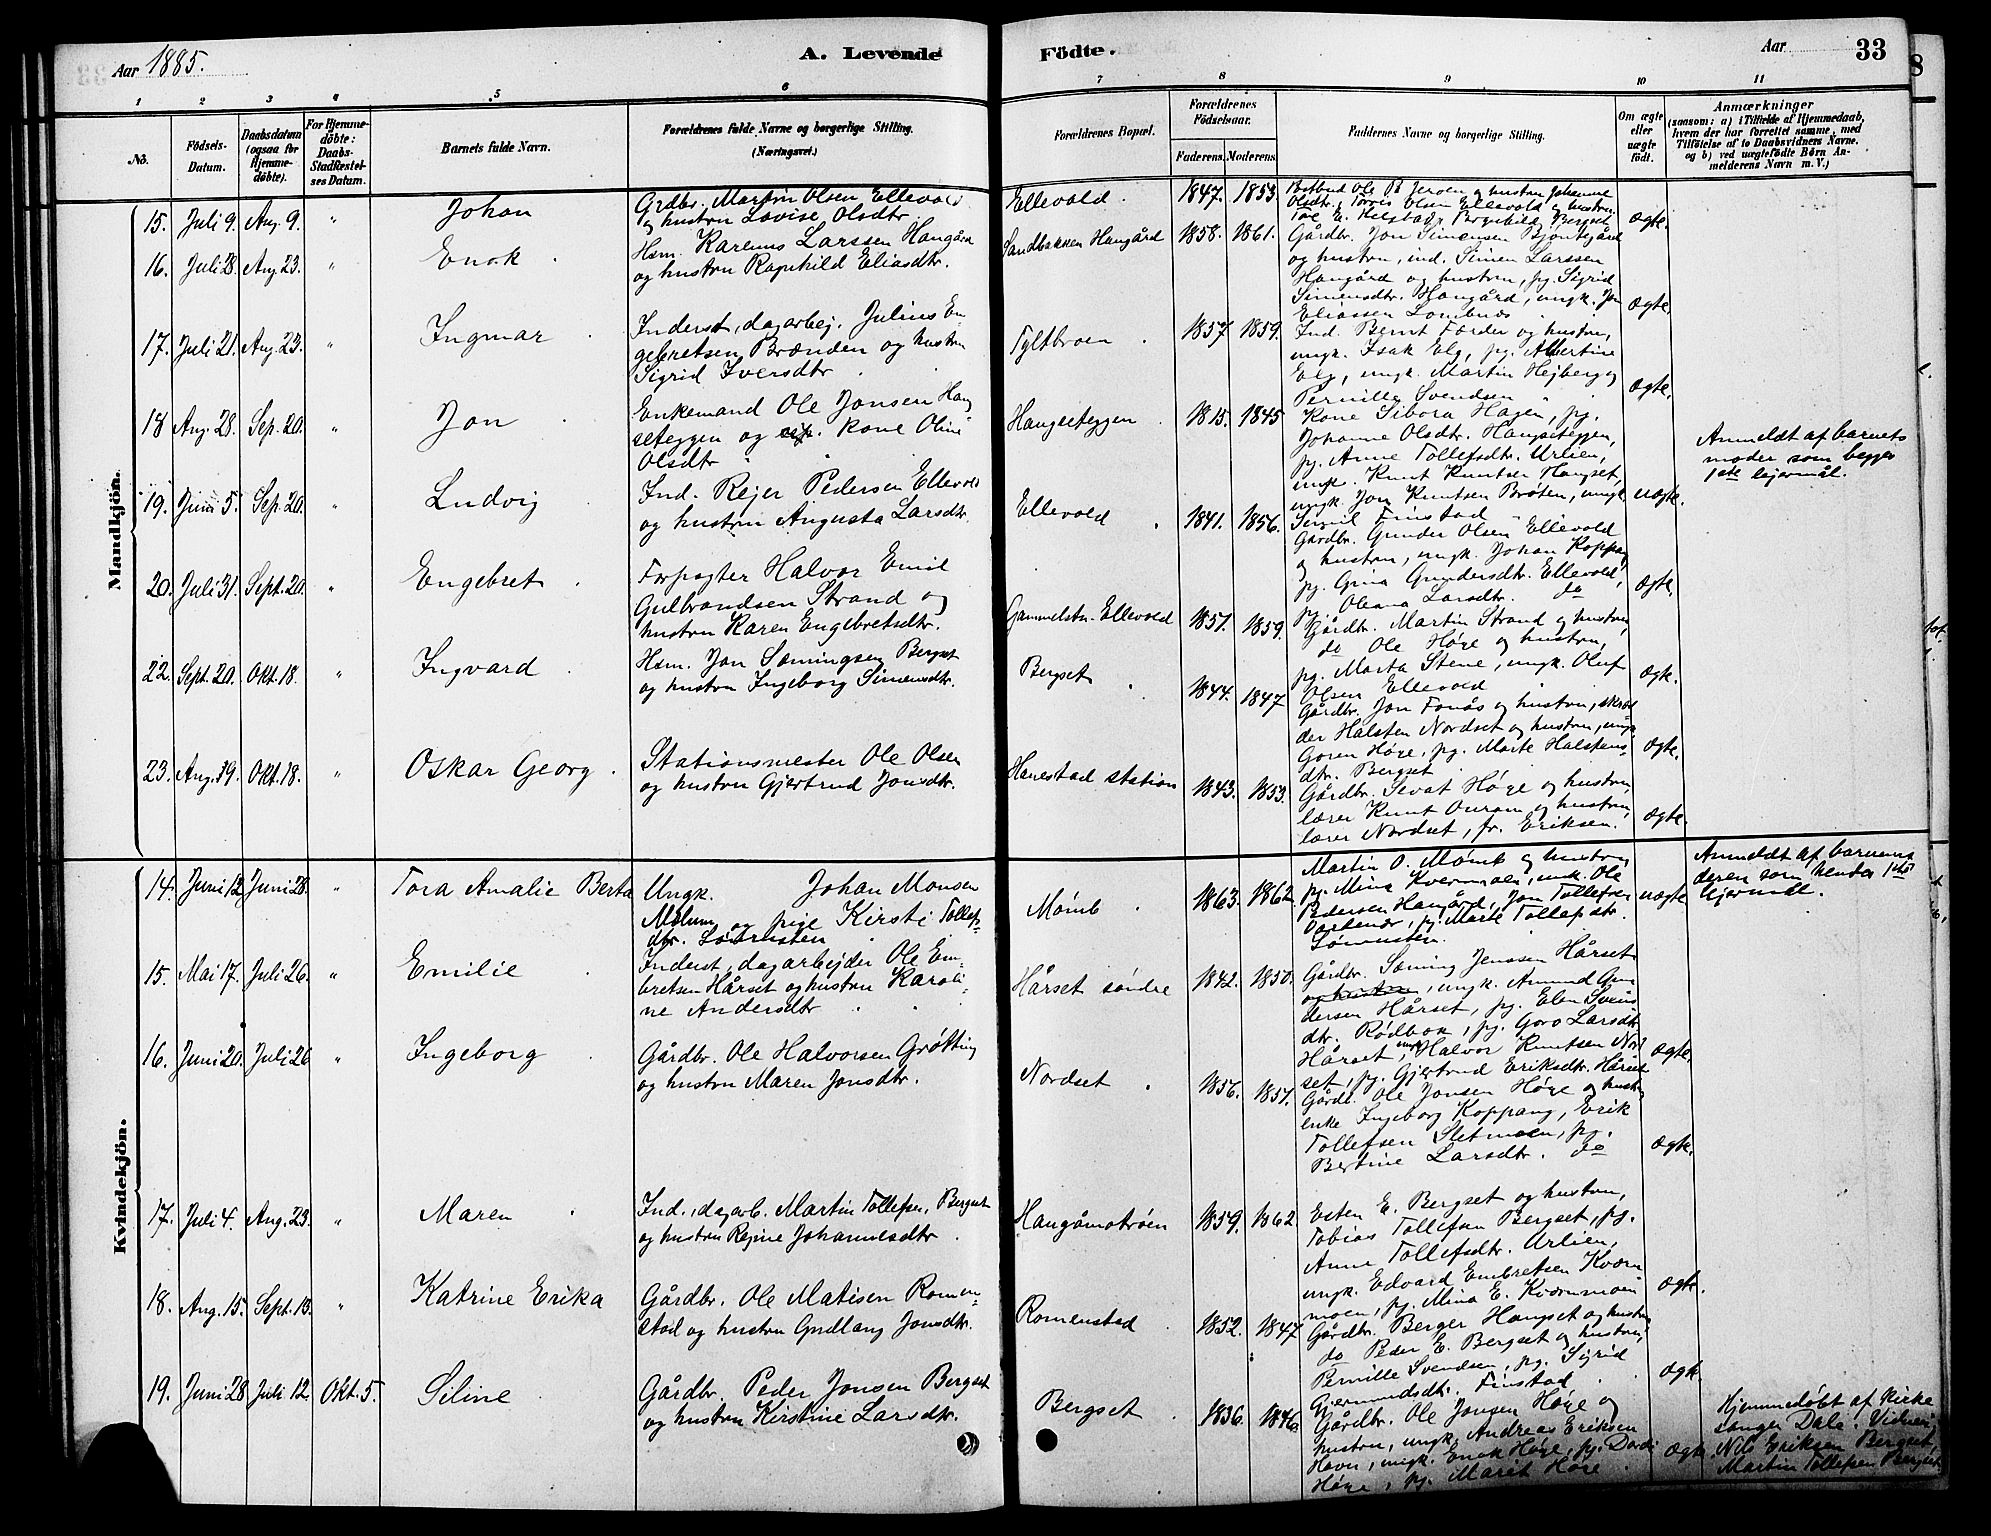 Aar 1885.
A. Levende
Födte.
Aar
33
1 2 3 4 5 6
7 8 9 10 11
No.
Födsels-
Datum.
Daabsdatum
(ogsaa for
Hjemme-
döbte).
For Hjemme-
döbte:
Daabs-
Stadfæstel-
ses Datum.
Barnets fulde Navn.
Forældrenes fulde Navne og borgerlige Stilling.
(Næringsvei.)
Forældrenes Bopæl.
Forældrenes
Födselsaar.
Faderens. Moderens.
Faddernes Navne og borgerlige Stilling.
Om ægte
eller
uægte
födt.
Anmærkninger
(saasom: a) i Tilfælde af Hjemmedaab,
hvem der har forrettet samme, med
Tilföielse af to Daabsvidners Navne.
og b) ved uægtefödte Börn An-
melderens Navn m. V.)
Mandkjön.
15. Juli 9. Aug. 9. " Johan
Grdbr. Martin Olsen Ellevold
og hustru Lovise Olsdtr.
Ellevold . 1847. 1853.
Olsdtr., Torris Olsen Ellevold og hustru
ægte.
16. Juli 28. Aug. 23. " Enok .
Hsm. Karenus Larssen Hangård
og hustru Ragnhild Eliasdtr.
Sandbakken Hangård 1858. 1861.
Gårdbr. Jon Simensen Bjøntegård
og hustru, ind. Simen Larssen
Hangård og hustru, pg. Sigrid
Simensdtr. Hangård, ungk. Jon
Eliassen Lombnæs
ægte.
17. Juli 21. Aug. 23. " Ingmar .
Inderst, dagarbej. Julius En-
gebretsen Brænden og hustru
Sigrid Iversdtr .
Tyltbroen . 1857. 1859.
Ind. Bernt Færder og hustru,
ungk. Isak Elg, pg. Albertine
Elg, ungk. Martin Hejberg og
Pernille Svendsen "
ægte.
18 Aug. 28. Sep. 20. " Jon .
Enkemand Ole Jonsen Hang
seteggen og kone Oline
Olsdtr
Hangseteggen . 1815. 1845
Kone Sibora Hagen, pg.
Johanne Olsdtr. Hangseteggen,
pg. Anne Tollefsdtr. Urlien,
ungk. Knut Knutsen Hangset,
ungk. Jon Knutsen Brøten, ungk.
Sigvil Finstad
uægte.
Anmeldt af barnets
moder som begges
1ste lejermål.
19. Juni 5. Sep. 20. " Ludvig
Ind. Rejer Pedersen Ellevold
og hustru Augusta Larsdtr.
Ellevold . 1841. 1856.
Gårdbr. Gunder Olsen Ellevold
og hustru, ungk. Johan Koppang
pg. Gina Gundersdtr. Ellevold,
pg. Oleana Larsdtr. do
ægte.
20. Juli 31. Sept. 20. " Engebret .
Forpagter Halvor Emil
Gulbrandsen Strand og
hustru Karen Engebretsdtr.
Gammelstu. Ellevold 1851. 1859.
Gårdbr. Martin Strand og hustru,
do Ole Høge og hustru,
pg. Marta Stene, ungk. Oluf
Olsen Ellevold
ægte.
22. Sept. 20. Okt. 18. " Ingvard .
Hsm. Jon Sæmingsen Bergset
og hustru Ingeborg Simensdtr.
Bergset . 1844. 1847
Gårdbr. Jon Fonås og hustru, skræd
der Halsten Nordset og hustru, ungk.
Goren Høge, pg. Marte Halstens
dtr. Bergset
ægte.
23. Aug. 19. Okt. 18. " Oskar Georg .
Stationsmester Ole Olsen
og hustru Gjertrud Jonsdtr.
Hanestad station 1843. 1853.
Gårdbr. Sivat Høge og hustru,
lærer Knut Ouram og hustru,
lærer Nordset, fr. Eriksen.
ægte.
Kvindekjön.
14. Juni 12. Juni 28. " Tora Amalie Berta
Ungk. Johan Monsen
Melum og pige Kirsti Tollefs-
dtr.
Mømb . 1863. 1862.
Martin O. Mømb og hustru
pg. Mina Kvernmoen, ungk. Ole
Pedersen Hangård, Jon Tollefsen
pg. Marte Tollefsdtr.
uægte
Anmeldt af barnefa
deren som hendes 1ste
lejermål.
15. Mai 17. Juli 26. " Emilie .
Inderst, dagarbejder Ole Em-
bretsen Hårset og hustru Karoli-
ne Andersdtr
Hårset søndre 1842. 1850.
Gårdbr. Sæming Jenssen Hårset
og hustru, ungk. Amund Gun
dersen Hårset, pg. Elen Svens
dtr. Rødbæk, pg. Goro Larsdtr
Hårset, ungk. Halvor Knutsen Nord
set, pg. Gjertrud Eriksdtr. Hårset
ægte.
16. Juni 20. Juli 26 " Ingeborg .
Gårdbr. Ole Halvorsen Grøtting
og hustru Maren Jonsdtr.
Nordset . 1856. 1851.
Gårdb. Ole Jonsen Høge og hustru,
enke Ingeborg Koppang, Erik
Tollefsen Sletmoen, pg.
Bertine Larsdtr. do
ægte.
17. Juli 4. Aug. 23. " Maren .
Ind., dagarb. Martin Tollefsen, Bergset
og hustru Regine Johannesdtr .
Hangåmotrøen 1859. 1862
Esten E. Bergset og hustru,
Tobias Tollefsen Bergset, pg.
Anne Tollefsdtr. Urlien,
ungk. Edvard Embretsen Kværn
moen, pg. Mina E. Kværnmoen
ægte.
18. Aug. 15. Sept. 13. " Katrine Erika
Gårdbr. Ole Matisen Romen-
stad og hustru Gudlaug Jonsdtr.
Romenstad . 1852. 1847
Gårdbr. Berger Hangset og hustru
do Peder E. Bergset og hustru,
Pernille Svendsen, pg. Sigrid
Gjermundsdtr. Finstad .
ægte.
19. Juni 28. Juli 12. Okt. 5. Siline .
Gårdbr. Peder Jonsen Bergset
og hustru Kirstine Larsdtr.
Bergset . 1836. 1846.
Gårdbr. Ole Jonsen Høge og
hustru, ungk. Andreas Eriksen
Havn, ungk. Enok Høge, pg. Dordi
Høge, pg. Marit Høge .
ægte.
Hjemmedøbt af kirke
sanger Dale. Vidner:
Nils Eriksen Bergset,
Martin Tollefsen Bergset